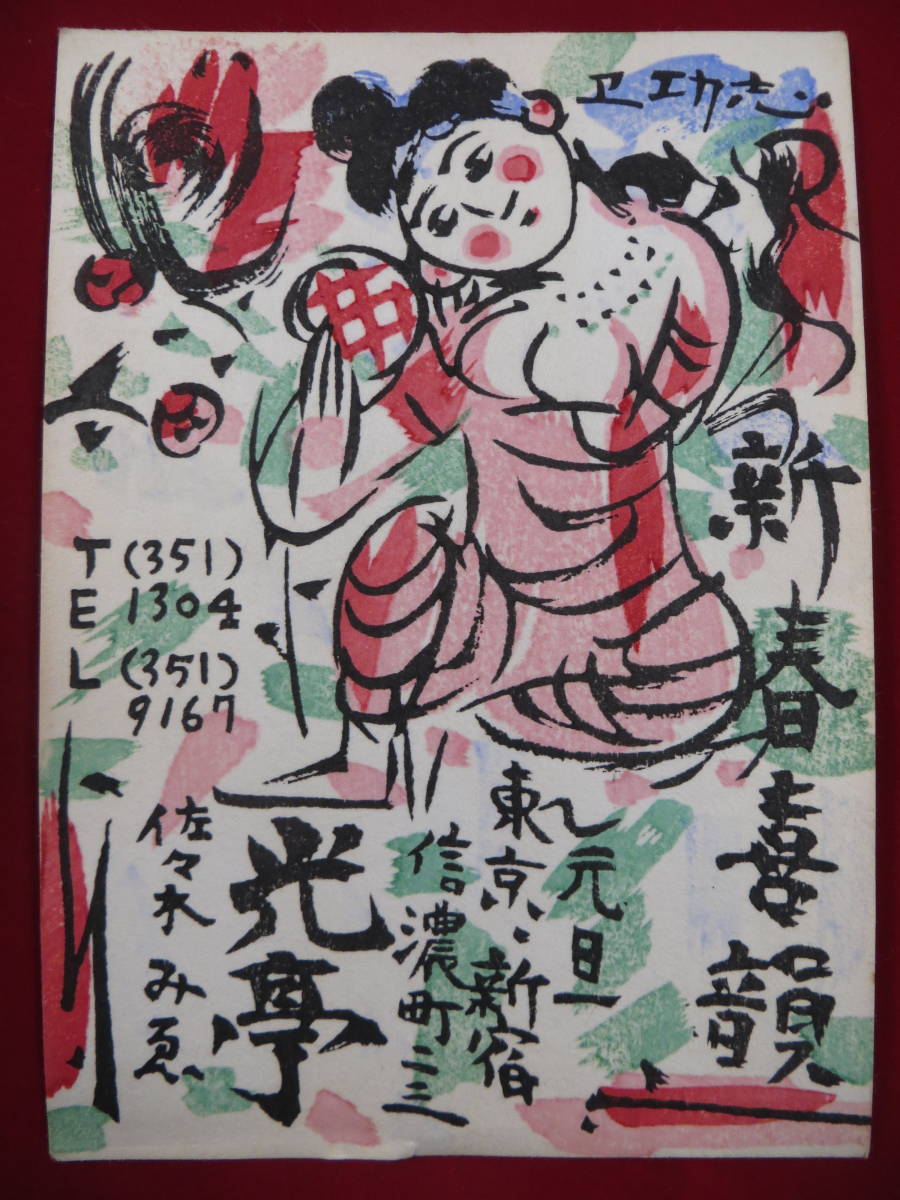 新春喜韻
元旦
東京・新宿
信濃町三三
光亭
佐々木みゑ
TEL
(351)
1304
(351)
9167